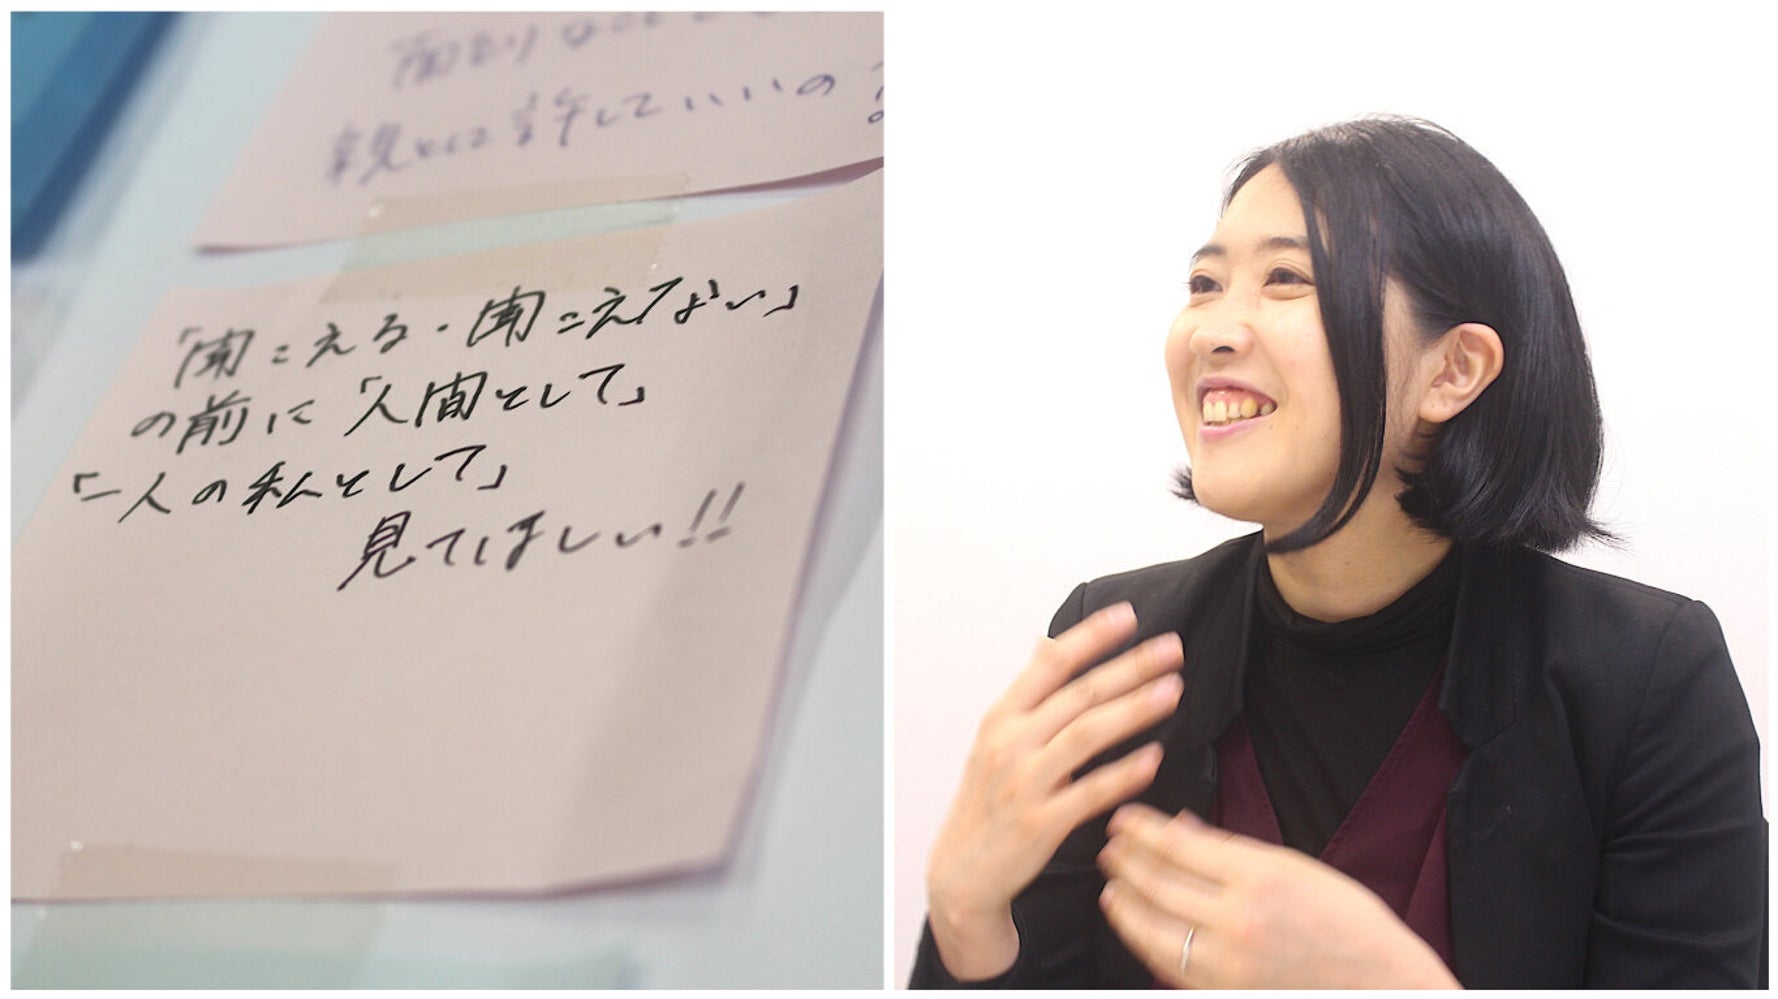 親とかに許していいの?
「聞こえる・聞こえない」
の前に「人間として」
「一人の私として」
見てほしい!!